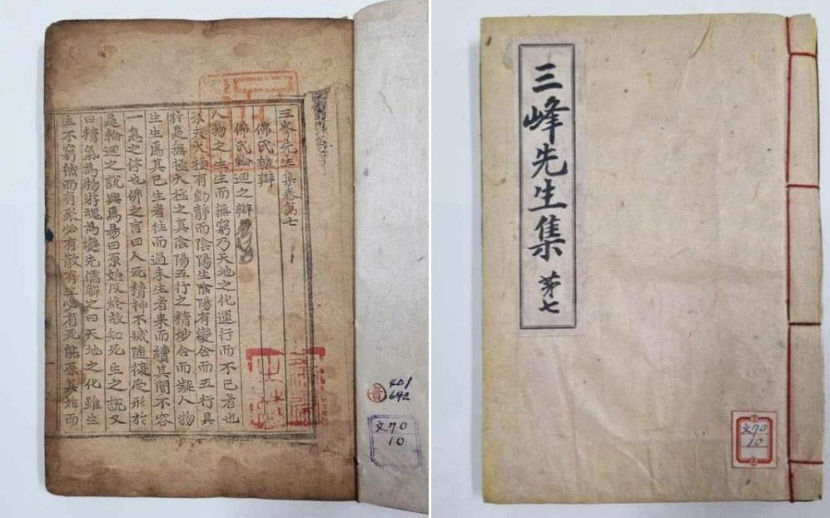 三峯先生集卷苐七
佛氏雜辨
佛氏輪迴之辨
人物之生生而無窮乃天地之化運行而不已者也
原夫太極有動静而陰陽生陰陽有變合而五行具
於是無極太極之真陰陽五行之精妙合而凝人物
生生焉其已生者徃而過未生者来而續其間不容
一息之停也佛之言曰人死精神不滅随復受形於
是輪迴之說興焉易曰原始反終故知死生之說又
曰精氣為物游魂為變先儒解之曰天地之化雖生
生不窮然而有聚必有散有生必有死能原其始而
文70
10
三峰先生集 苐七
文70
10